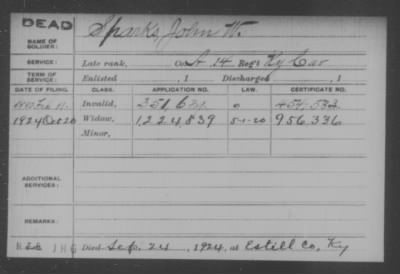 DEAD
NAME OF SOLDIER: Sparks, John W.
SERVICE: Late rank, Co. A 14 Reg't Ky Cav
TERM OF SERVICE: Enlisted , 1 Discharged , 1
DATE OF FILING. CLASS. APPLICATION NO. LAW. CERTIFICATE NO.
Invalid,
1924 Oct 20 Widow, 1,224,839 5-1-20 956,336
Minor,
ADDITIONAL SERVICES:
REMARKS:
Died Sep. 24, 1924, at Estill Co, Ky